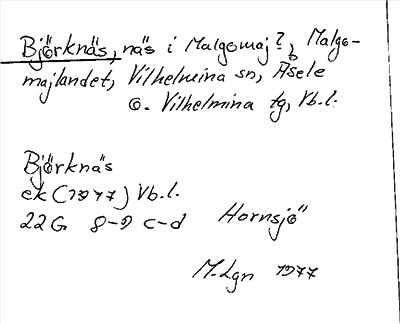 Björknäs, näs i Malgomaj?, Malgo-
majlandet, Vilhelmina sn, Åsele
o. Vilhelmina tg, Vb.l.
Björknäs
ek (1977) Vb.l.
22G 8-9 c-d Hornsjö
M. Lgn 1977